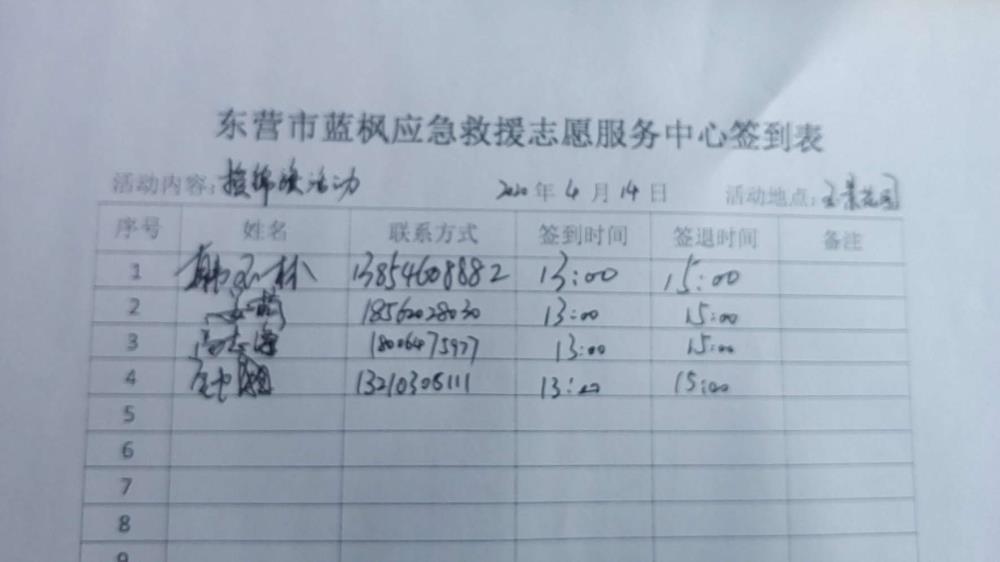 东营市蓝枫应急救援志愿服务中心签到表
活动内容: 活动 2020年4月14日 活动地点: 景花园
序号 姓名 联系方式 签到时间 签退时间 备注
1 13854608882 13:00 15:00
2 18562028030 13:00 15:00
3 18006475977 13:00 15:00
4 13210306111 13:00 15:00
5
6
7
8
9